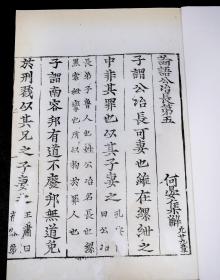 論語公冶長第五
何晏集解
子謂公冶長可妻也雖在縲絏之
中非其罪也以其子妻之
長弟子魯人也姓公冶名長也縲
黑索絏攣也所以拘罪人也
子謂南容邦有道不廢邦無道免
於刑戮以其兄之子妻之
王肅曰